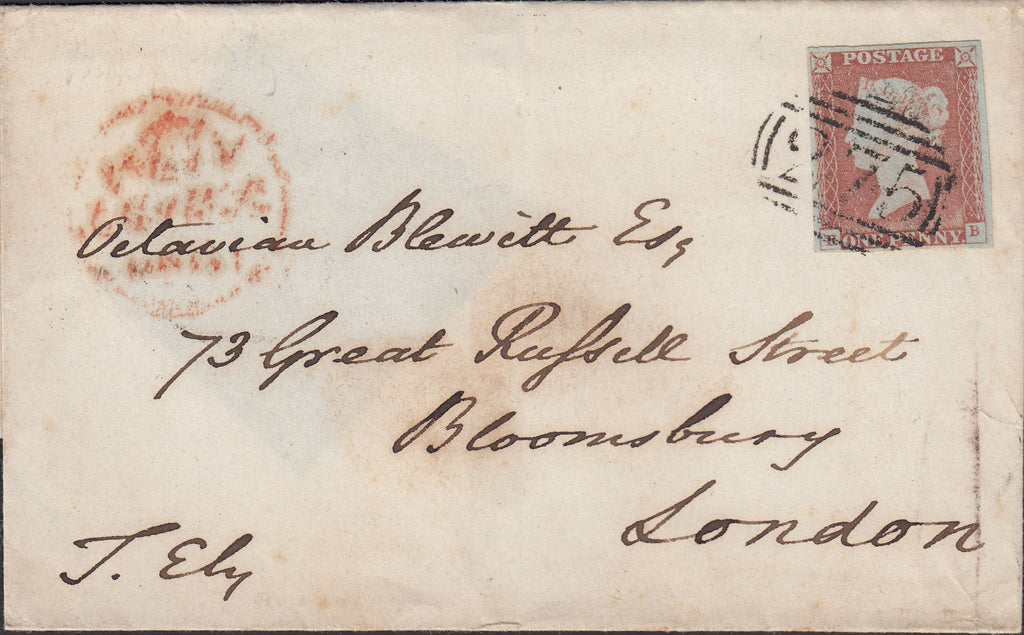 POSTAGE
275
R ONE PENNY B
Octavian Blewitt Esq
73 Great Russell Street
Bloomsbury
London
T. Ely